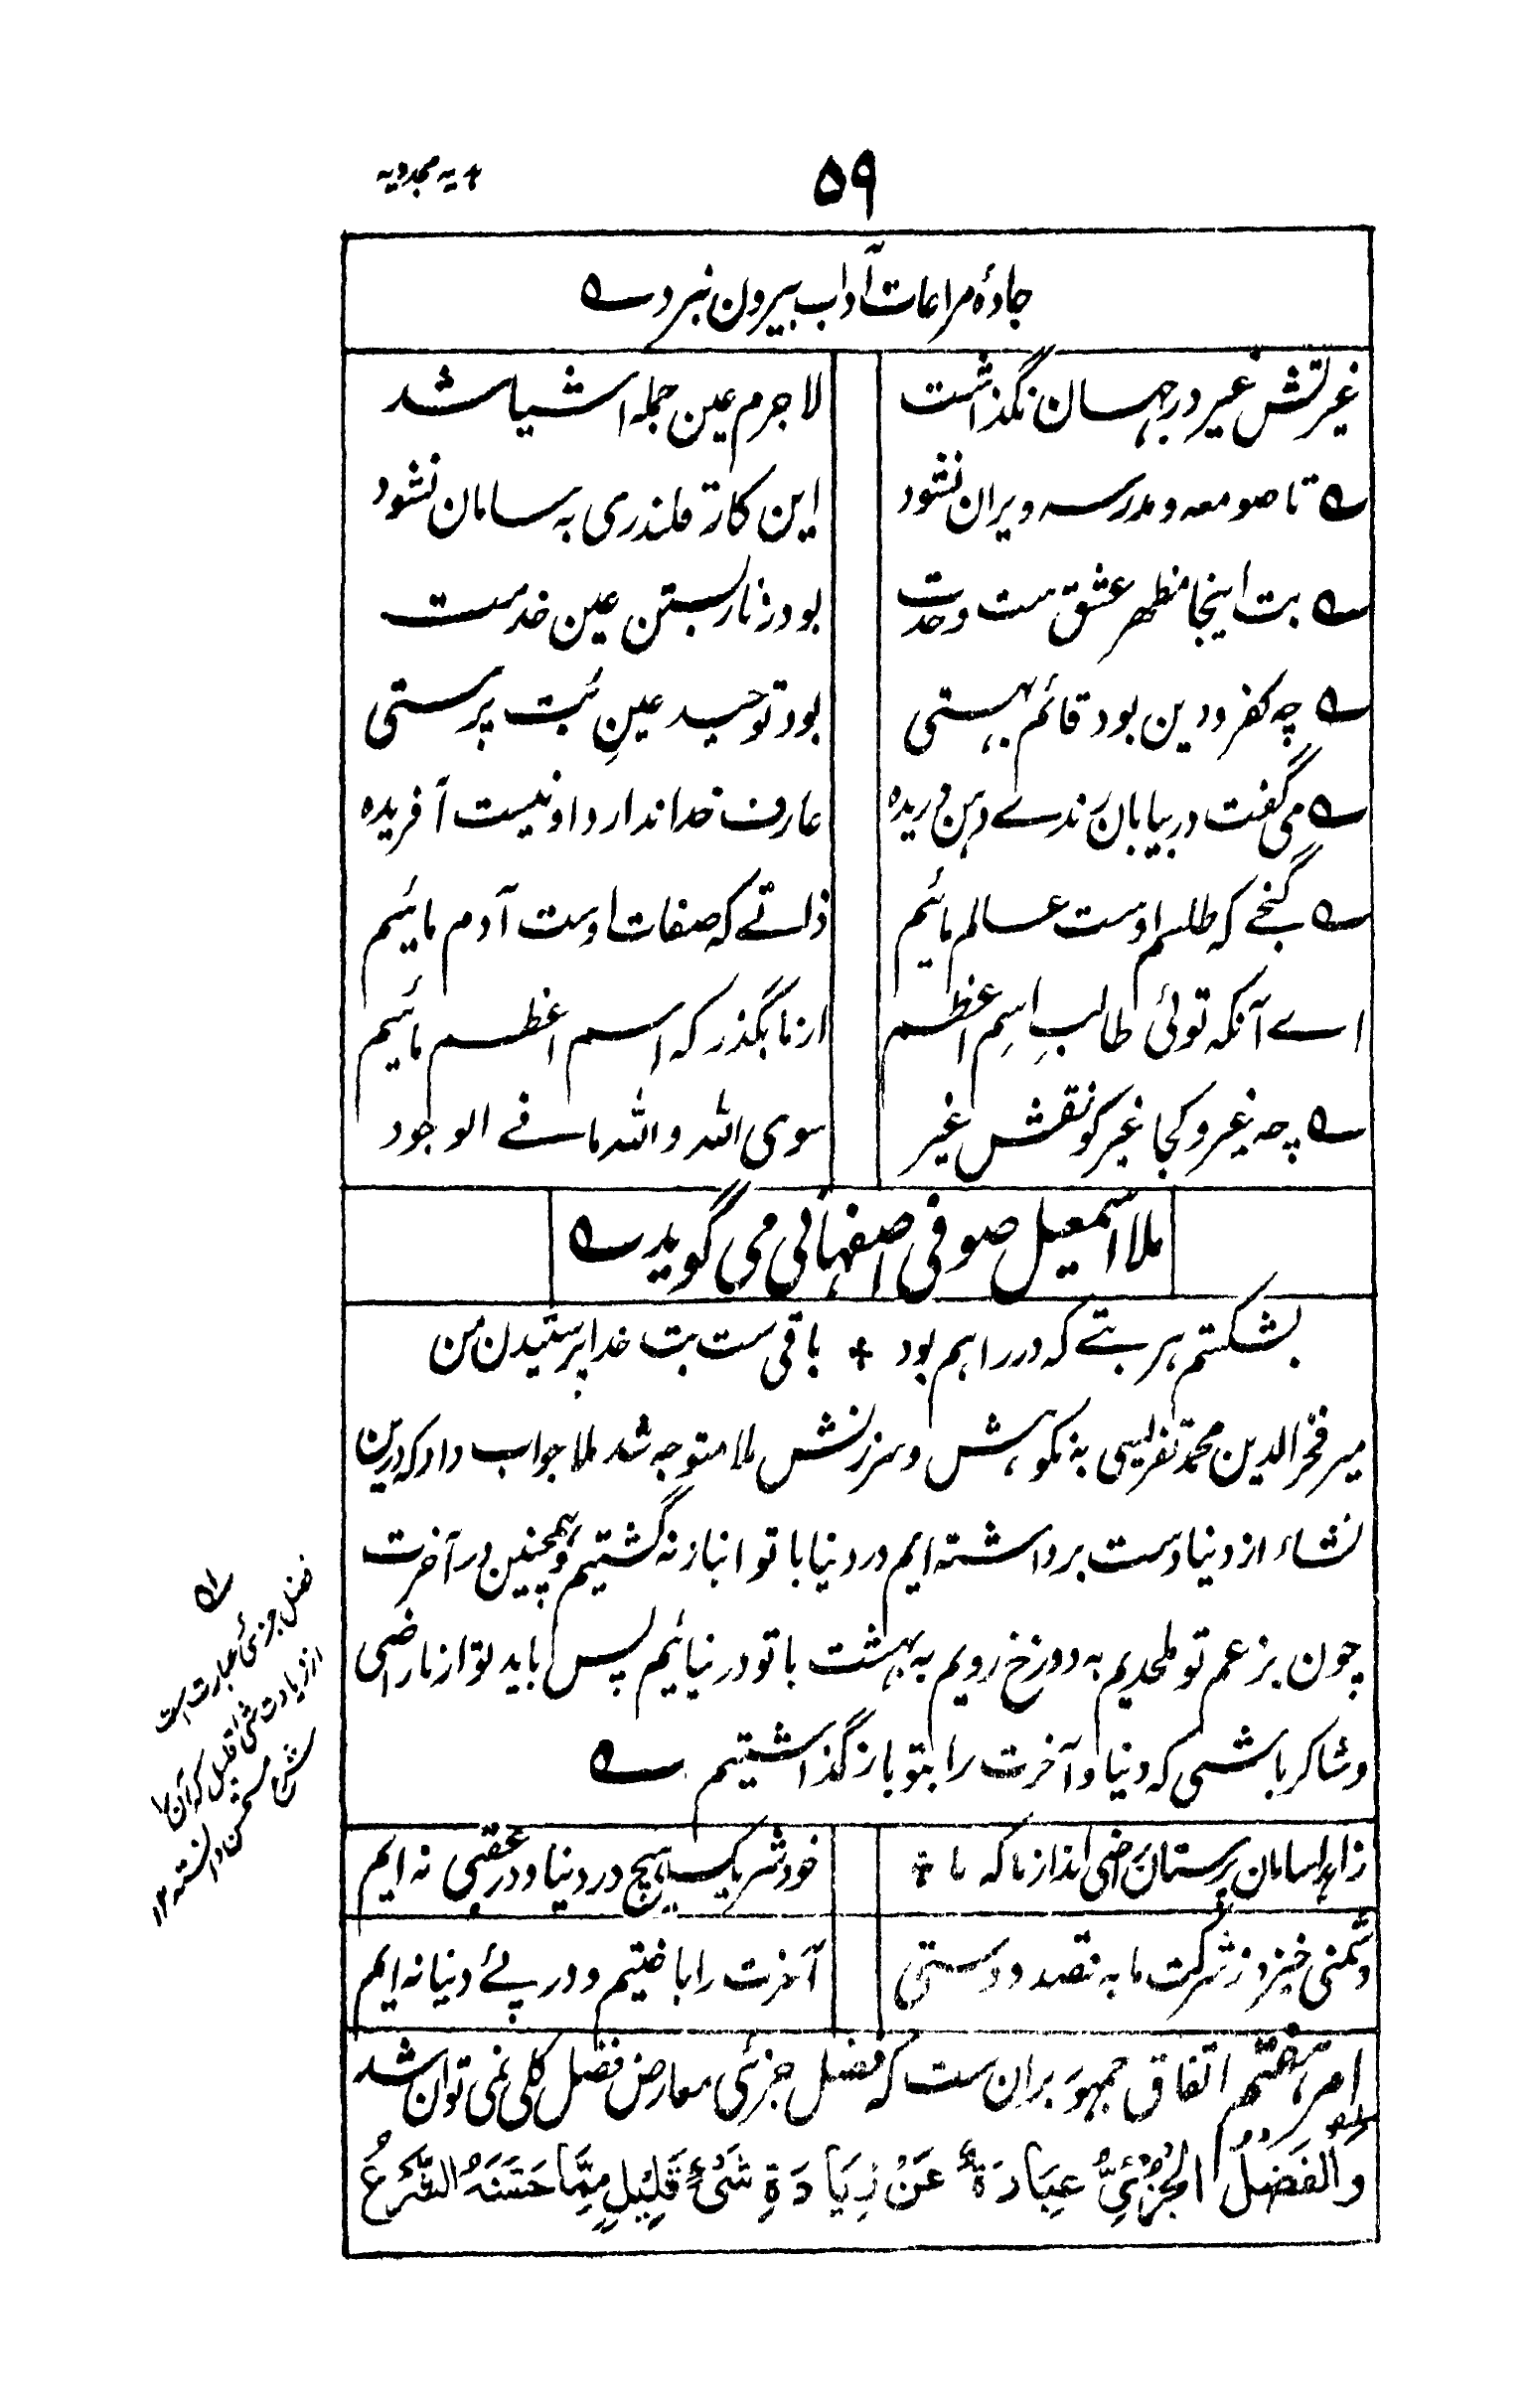 ۵۹
جادهٔ مراعات آداب بیرون نبرد ؎
غیرتش غیر در جہان نگذاشت
لا جرم عین جملہ اشیا شد
؎ تا صومعہ و مدرسہ ویران نشود
این کار قلندری بہ سامان نشود
؎ بت اینجا مظہر عشق ست وحدت
بود زنار بستن عین خدمت
؎ چہ کفر و دین بود قائم بہستی
بود توحید عینِ بُت پرستی
؎ می گفت در بیابان رندے دہن دریده
عارف خدا ندارد او نیست آفریده
؎ گنجے کہ طلسم اوست عالم مائیم
ذاتے کہ صفات اوست آدم مائیم
اے آنکہ توئی طالبِ اسِم اعظم
از ما بگذر کہ اسم اعظم مائیم
؎ چہ غیر و کجا غیر کو نقش غیر
سوی اللہ واللہ ما فے الوجود
ملا اسمعیل صوفی اصفہانی می گوید ؎
بشکستم ہر بتے کہ در راہم بود + باقی ست بت خدا پرستیدن من
میر فخر الدین محمد تفرلیسی بہ نکوہش و سرزنش ملا متوجہ شد ملا جواب داد کہ درین
نشاء از دنیا دست برداشتہ ایم در دنیا با تو انباز نہ گشتیم و ہمچنین در آخرت
چون بزعم تو ملحدیم بہ دوزخ رویم بہ بہشت با تو در نیائیم پس باید تو از ما راضی
و شاکر باشی کہ دنیا و آخرت را بتو باز گذاشتیم ؎
زاہدا سامان پرستان راضی اند از ما کہ ما +
خود شریک ہیچ در دنیا و در عقبی نہ ایم
دشمنی خیزد ز شرکت ما بہ قصد دوستی
آخرت را باختیم و در پئے دنیا نہ ایم
امر ہفتم اتفاق جمہور بران ست کہ فضل جزئی معارض فضل کلی نمی توان شد
وَالْفَضْلُ الْجُزْئِیُّ عِبَارَةٌ عَنْ زِیَادَةِ شَیْءٍ قَلِیْلٍ مِمَّا حَسَّنَهُ الشَّرْعُ
فضل جزئی عبارت است
از زیادت شی قلیل کہ آن را
شرع مستحسن دانستہ ۱۲